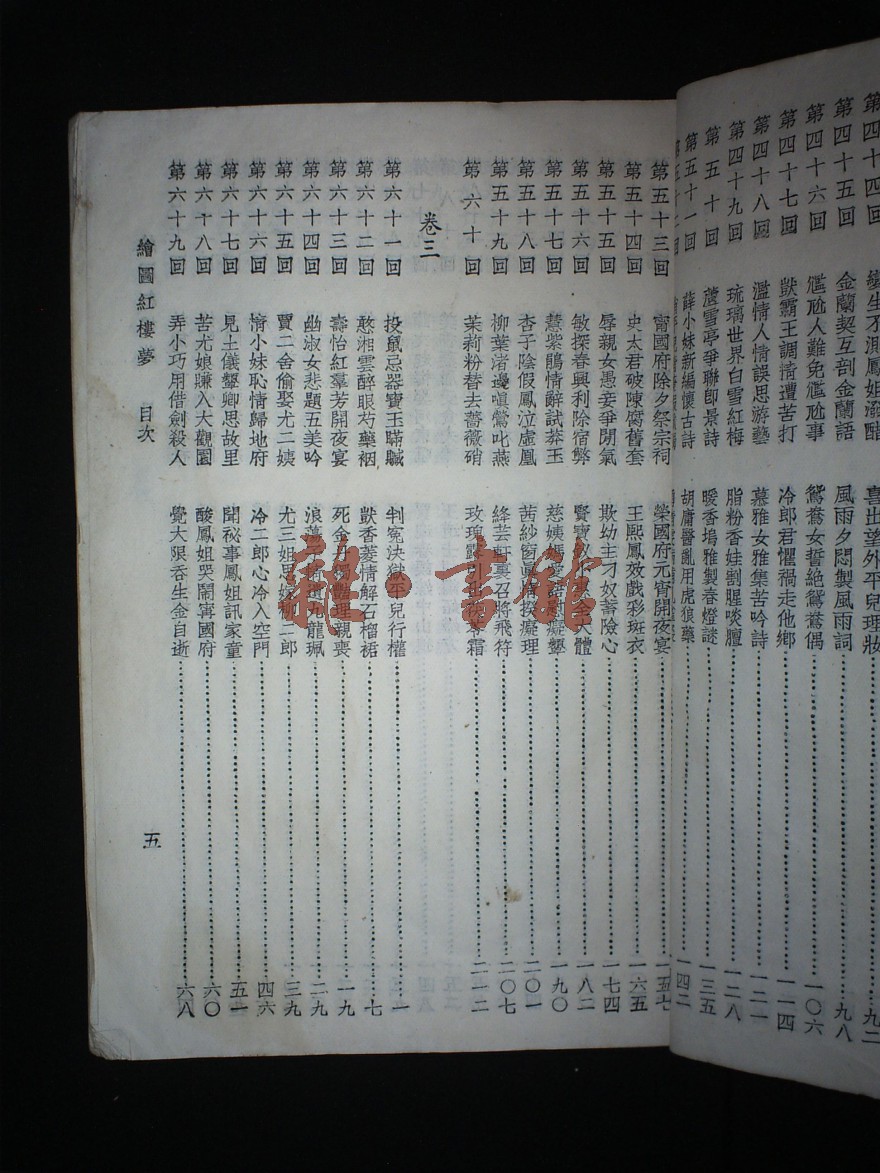 第四十四回 變生不測鳳姐潑醋 喜出望外平兒理妝 九二
第四十五回 金蘭契互剖金蘭語 風雨夕悶製風雨詞 九八
第四十六回 尷尬人難免尷尬事 鴛鴦女誓絕鴛鴦偶 一〇六
第四十七回 獃霸王調情遭苦打 冷郎君懼禍走他鄉 一一四
第四十八回 濫情人情誤思游藝 慕雅女雅集苦吟詩 一二一
第四十九回 琉璃世界白雪紅梅 脂粉香娃割腥啖膻 一二八
第五十回 蘆雪亭爭聯卽景詩 暖香塢雅製春燈謎 一三五
第五十一回 薛小妹新編懷古詩 胡庸醫亂用虎狼藥 一四二
第五十三回 甯國府除夕祭宗祠 榮國府元宵開夜宴 一五七
第五十四回 史太君破陳腐舊套 王熙鳳效戲彩斑衣 一六五
第五十五回 辱親女愚妾爭閒氣 欺幼主刁奴蓄險心 一七四
第五十六回 敏探春興利除宿弊 賢寶釵小惠全大體 一八二
第五十七回 慧紫鵑情辭試莽玉 慈姨媽愛語慰癡顰 一九〇
第五十八回 杏子陰假鳳泣虛凰 茜紗窗眞情揆癡理 二〇一
第五十九回 柳葉渚邊嗔鶯叱燕 絳芸軒裏召將飛符 二〇七
第六十回 茉莉粉替去薔薇硝 玫瑰露引出茯苓霜 二一二
卷三
第六十一回 投鼠忌器寶玉瞞臟 判冤決獄平兒行權 一
第六十二回 憨湘雲醉眼芍藥裀 獃香菱情解石榴裙 七
第六十三回 壽怡紅羣芳開夜宴 死金丹獨豔理親喪 一九
第六十四回 幽淑女悲題五美吟 浪蕩子情遺九龍珮 二九
第六十五回 賈二舍偷娶尤二姨 尤三姐思嫁柳二郎 三九
第六十六回 情小妹恥情歸地府 冷二郎心冷入空門 四六
第六十七回 見土儀顰卿思故里 聞祕事鳳姐訊家童 五一
第六十八回 苦尤娘賺入大觀園 酸鳳姐哭鬧甯國府 六〇
第六十九回 弄小巧用借劍殺人 覺大限吞生金自逝 六八
繪圖紅樓夢 目次 五
龍·書館